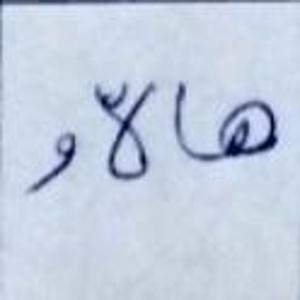 هاڵاو